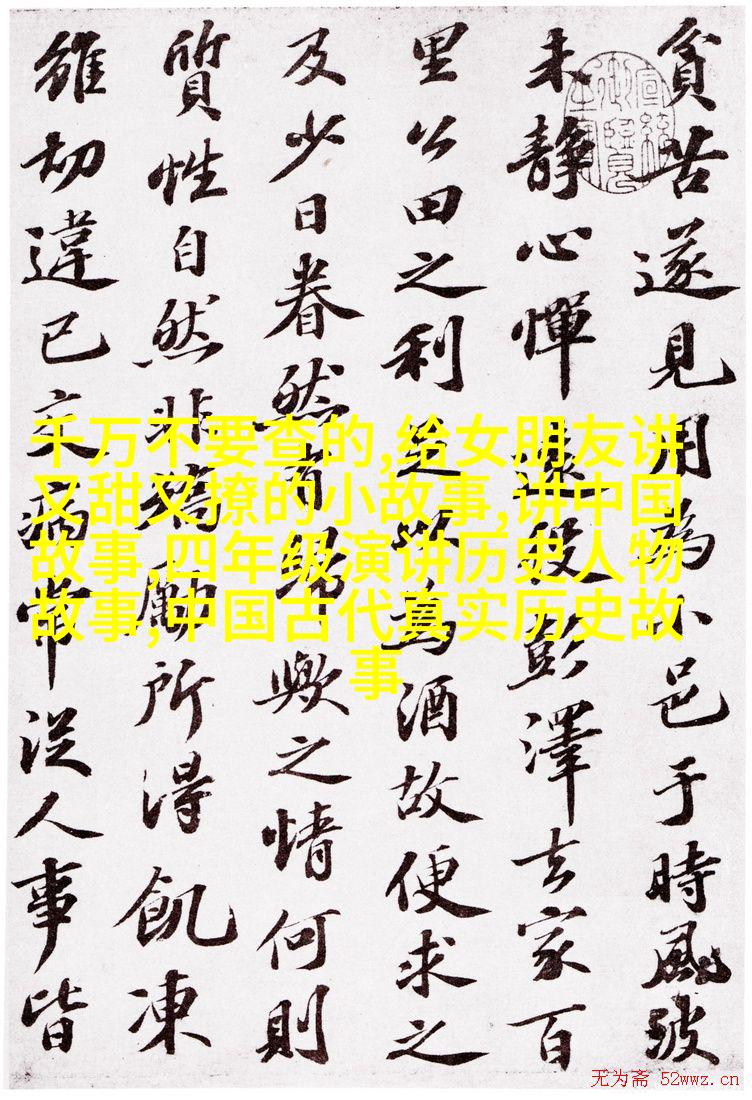 貧苦遂見用為小邑于時風波
未靜心憚遠役彭澤去家百
里公田之利足以為酒故便求之
及少日眷然有歸歟之情何則
質性自然非矯勵所得飢凍
雖切違已交病常從人事皆
宣統御覽之寶
千万不要查的,给女朋友讲
又甜又撩的小故事,讲中国
故事,四年级演讲历史人物
故事,中国古代真实历史故
事
无为斋 52wwz.cn